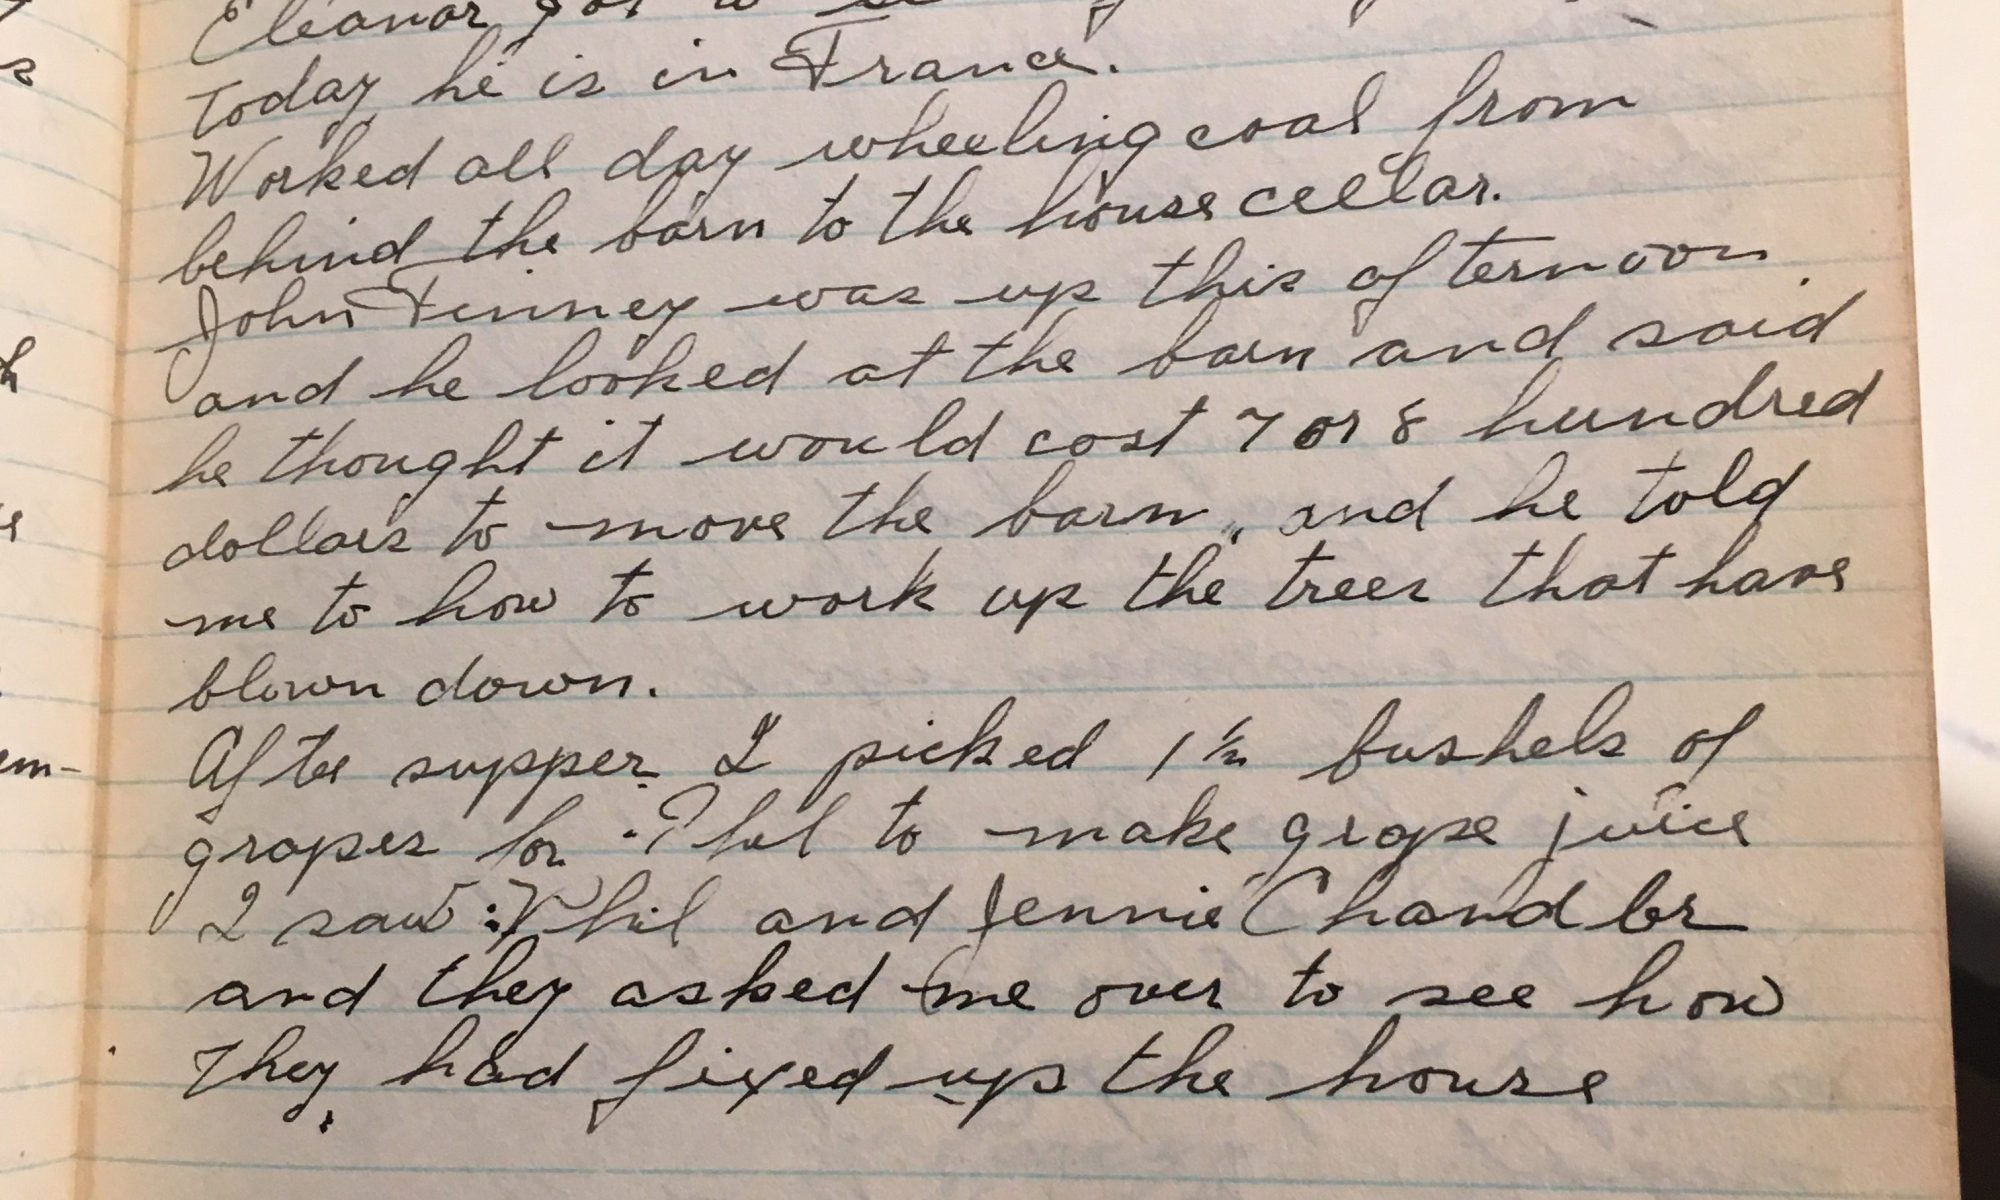 Eleanor got a
Today he is in France.
Worked all day wheeling coal from
behind the barn to the house cellar.
John Finney was up this afternoon
and he looked at the barn and said
he thought it would cost 7 or 8 hundred
dollars to move the barn, and he told
me to how to work up the trees that have
blown down.
After supper I picked 1 1/2 bushels of
grapes for Phil to make grape juice
I saw Phil and Jennie Chandler
and they asked me over to see how
They had fixed up the house